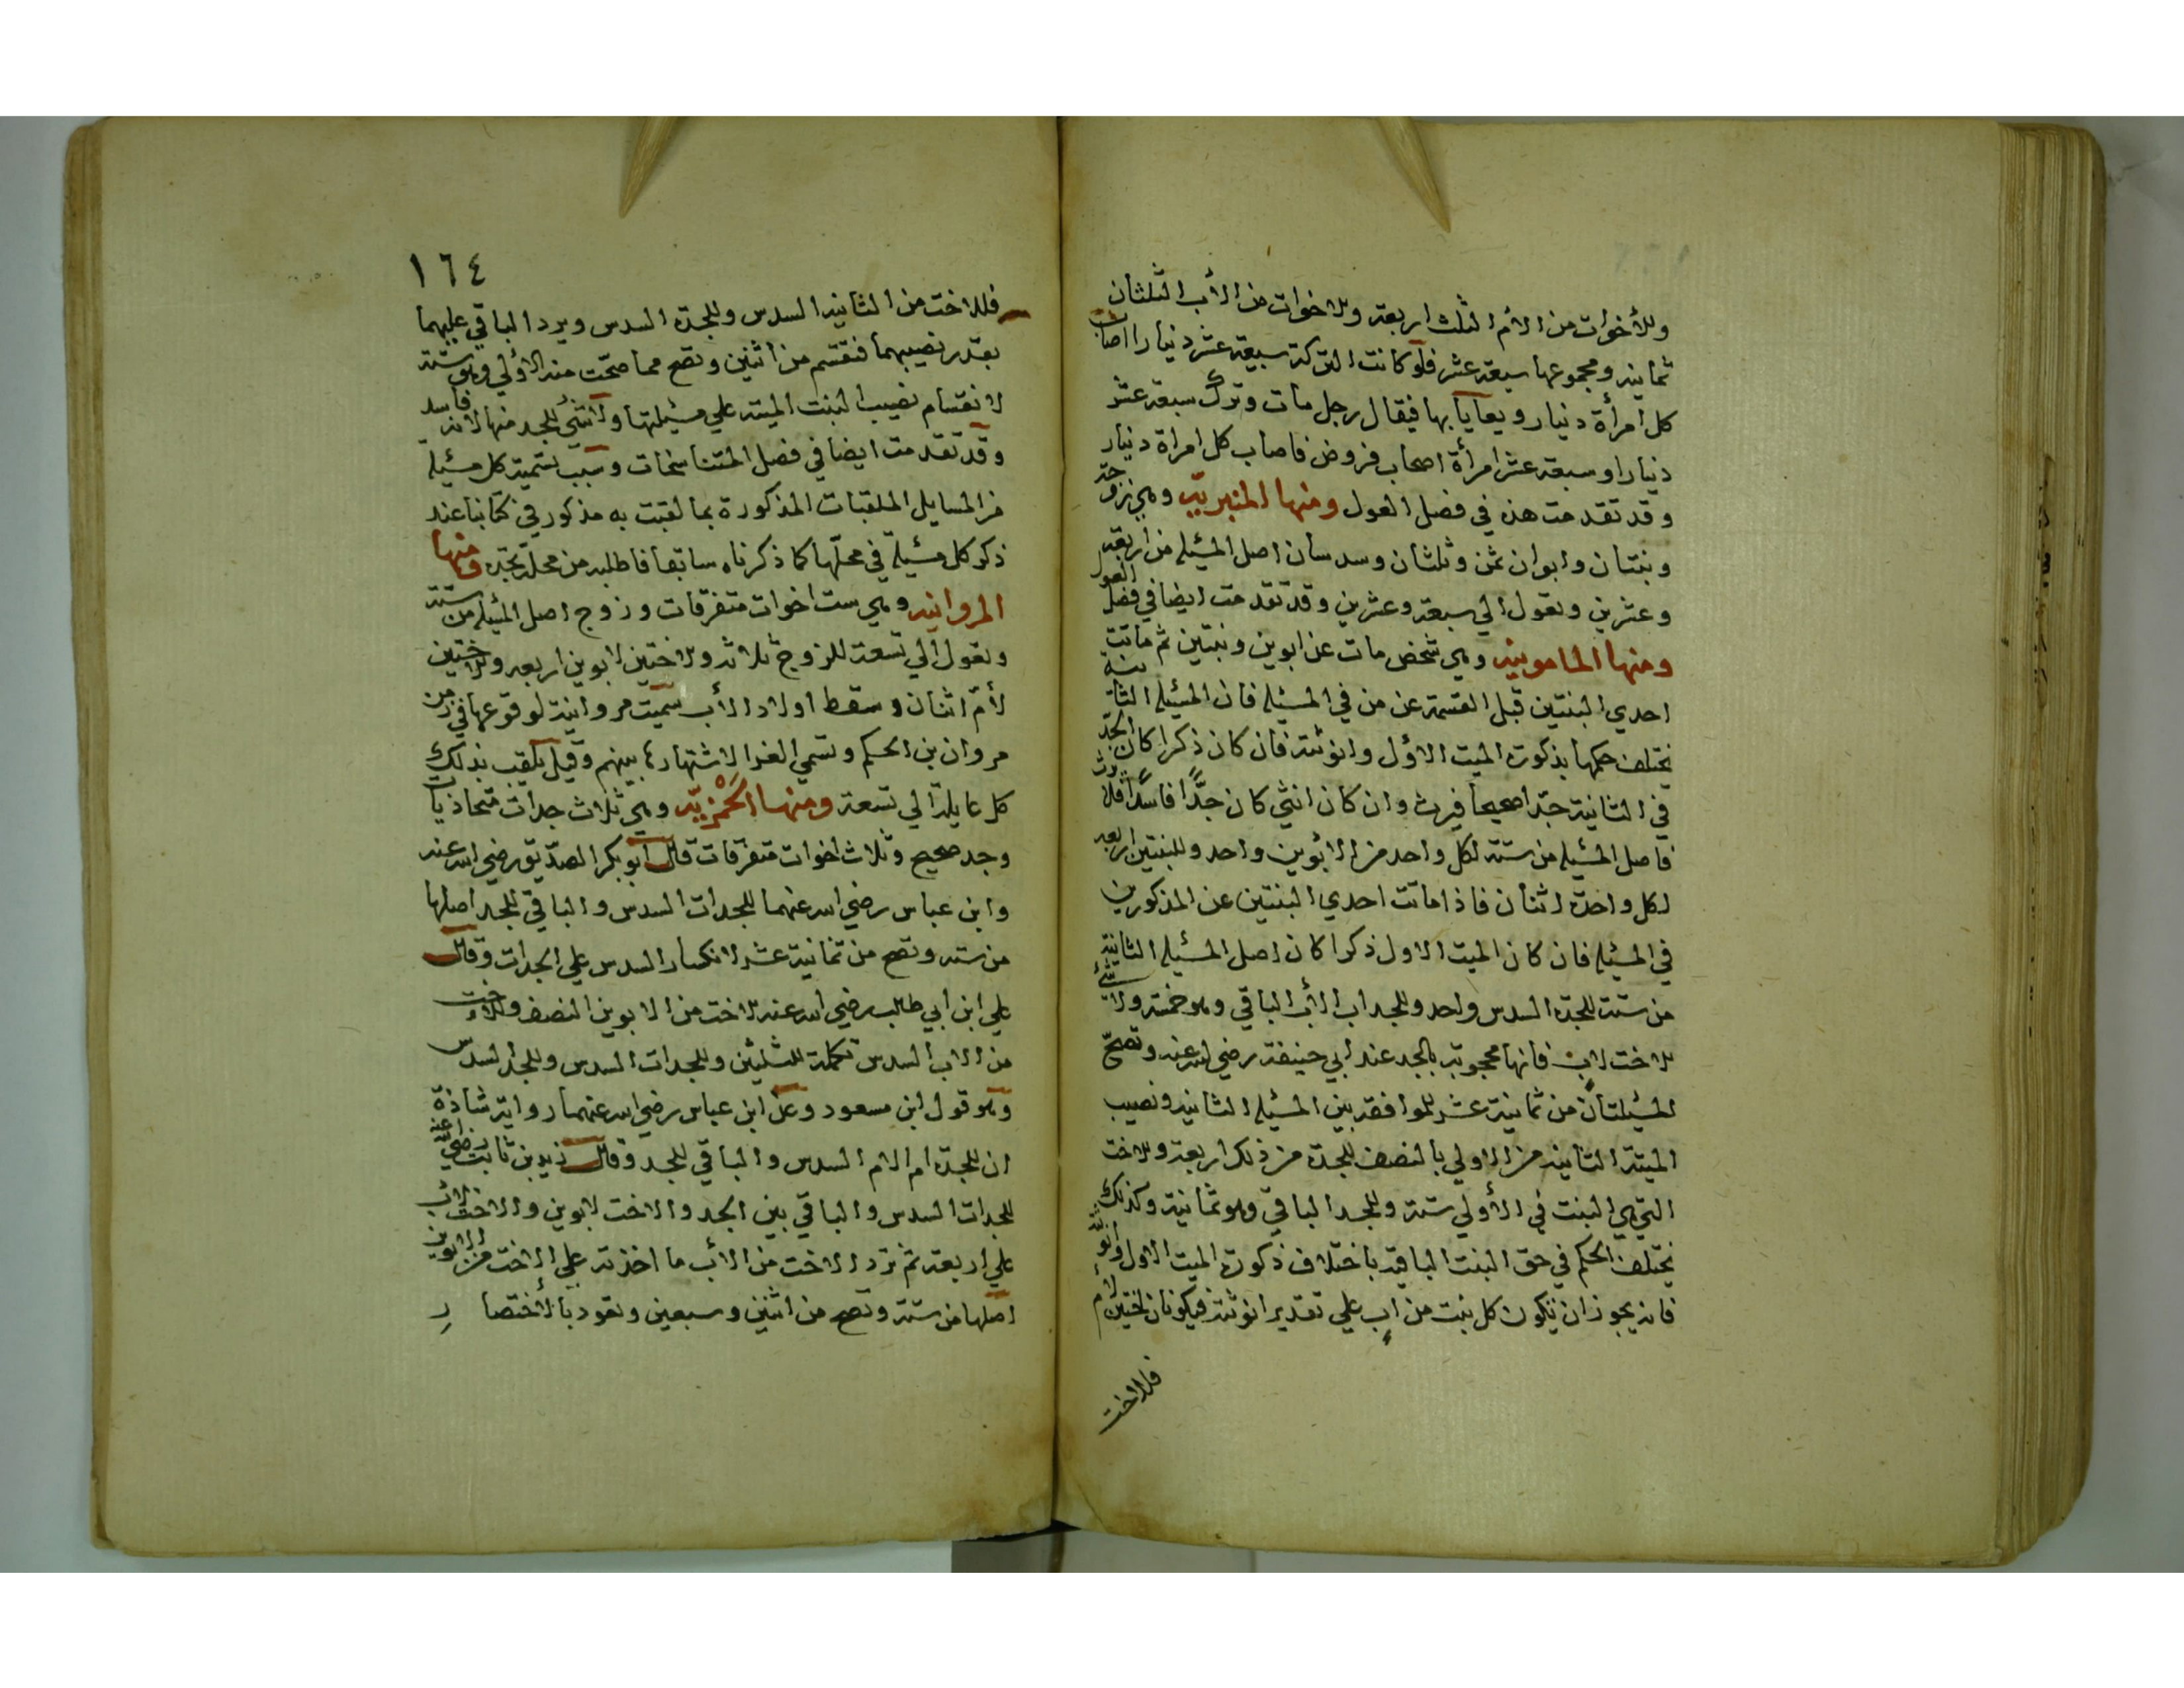 وللأخوات من الأم الثلث اربعة وللاخوات من الأب الثلثان
ثمانية ومجموعها سبعة عشر فلو كانت التركة سبعة عشر دينارا اصاب
كل امرأة دينار ويعايا بها فيقال رجل مات وترك سبعة عشر
دينارا وسبعة عشر امرأة اصحاب فروض فاصاب كل امراة دينار
وقد تقدمت هذه في فصل العول ومنها المنبرية وهي زوجة
وبنتان وابوان ثمن وثلثان وسدسان اصل المسئلة من اربعة
وعشرين وتعول الي سبعة وعشرين وقد تقدمت ايضا في فصل العول
ومنها المامونية وهي شخص مات عن ابوين وبنتين ثم ماتت
احدي البنتين قبل القسمة عن من في المسئلة فان المسئلة الثانية
يختلف حكمها بذكورة الميت الاول وانوثته فان كان ذكرا كان الجد
في الثانية جدا صحيحا فيرث وان كان انثي كان جدًّا فاسدًا فلا يرث
فاصل المسئلة من ستة لكل واحد من الابوين واحد وللبنتين اربعة
لكل واحدة اثنان فاذا ماتت احدي البنتين عن المذكورين
في المسئلة فان كان الميت الاول ذكرا كان اصل المسئلة الثانية
من ستة للجدة السدس واحد وللجد اب الأب الباقي وهو خمسة ولا شئ
للاخت لاب فانها محجوبة بالجد عند ابي حنيفة رضي الله عنه وتصح
المسئلتان من ثمانية عشر للموافقة بين المسئلة الثانية ونصيب
الميتة الثانية من الاولي بالنصف للجدة من ذلك اربعة وللاخت
التي هي البنت في الأولي ستة وللجد الباقي وهو ثمانية وكذلك
يختلف الحكم في حق البنت الباقية باختلاف ذكورة الميت الاول وانوثته
فانه يجوز ان يكون كل بنت من اب علي تقدير انوثته فيكونان اختين لأم
فللاخت
١٦٤
فللاخت من الثانية السدس وللجدة السدس ويرد الباقي عليهما
بقدر نصيبهما فتقسم من اثنين وتصح مما صحّت منه الأولي وهو ستة
لانقسام نصيب البنت الميتة علي مسئلتها ولا شئ للجد منها لانه فاسد
وقد تقدمت ايضا في فصل المتناسخات وسبب تسمية كل مسئلة
من المسايل الملقبات المذكورة بما لقبت به مذكور في كتابنا عند
ذكر كل مسئلة في محلّها كما ذكرناه سابقا فاطلبه من محلّه تجده ومنها
المروانية وهي ست اخوات متفرقات وزوج اصل المسئلة من ستة
وتعول الي تسعة للزوج ثلاثة وللاختين لابوين اربعة وللاختين
لأمّ اثنان وسقط اولاد الأب سميت مروانية لوقوعها في زمن
مروان بن الحكم وتسمي الغرا لاشتهارها بينهم وقيل تلقب بذلك
كل عايلة الي تسعة ومنها الحَمْزيّة وهي ثلاث جدات متحاذيات
وجد صحيح وثلاث اخوات متفرقات قال ابوبكر الصدّيق رضي الله عنه
وابن عباس رضي الله عنهما للجدات السدس والباقي للجد اصلها
من ستة وتصح من ثمانية عشر لانكسار السدس علي الجدات وقال
علي ابن ابي طالب رضي الله عنه للاخت من الابوين النصف وللاخت
من الاب السدس تكملة للثلثين وللجدات السدس وللجد السدس
وهو قول ابن مسعود وعن ابن عباس رضي الله عنهما رواية شاذة
ان للجدة ام الام السدس والباقي للجد وقال زيد بن ثابت رضي الله عنه
للجدات السدس والباقي بين الجد والاخت لابوين والاخت لاب
علي اربعة ثم ترد الاخت من الأب ما اخذته علي الاخت من الابوين
اصلها من ستة وتصح من اثنين وسبعين وتعود بالأختصار